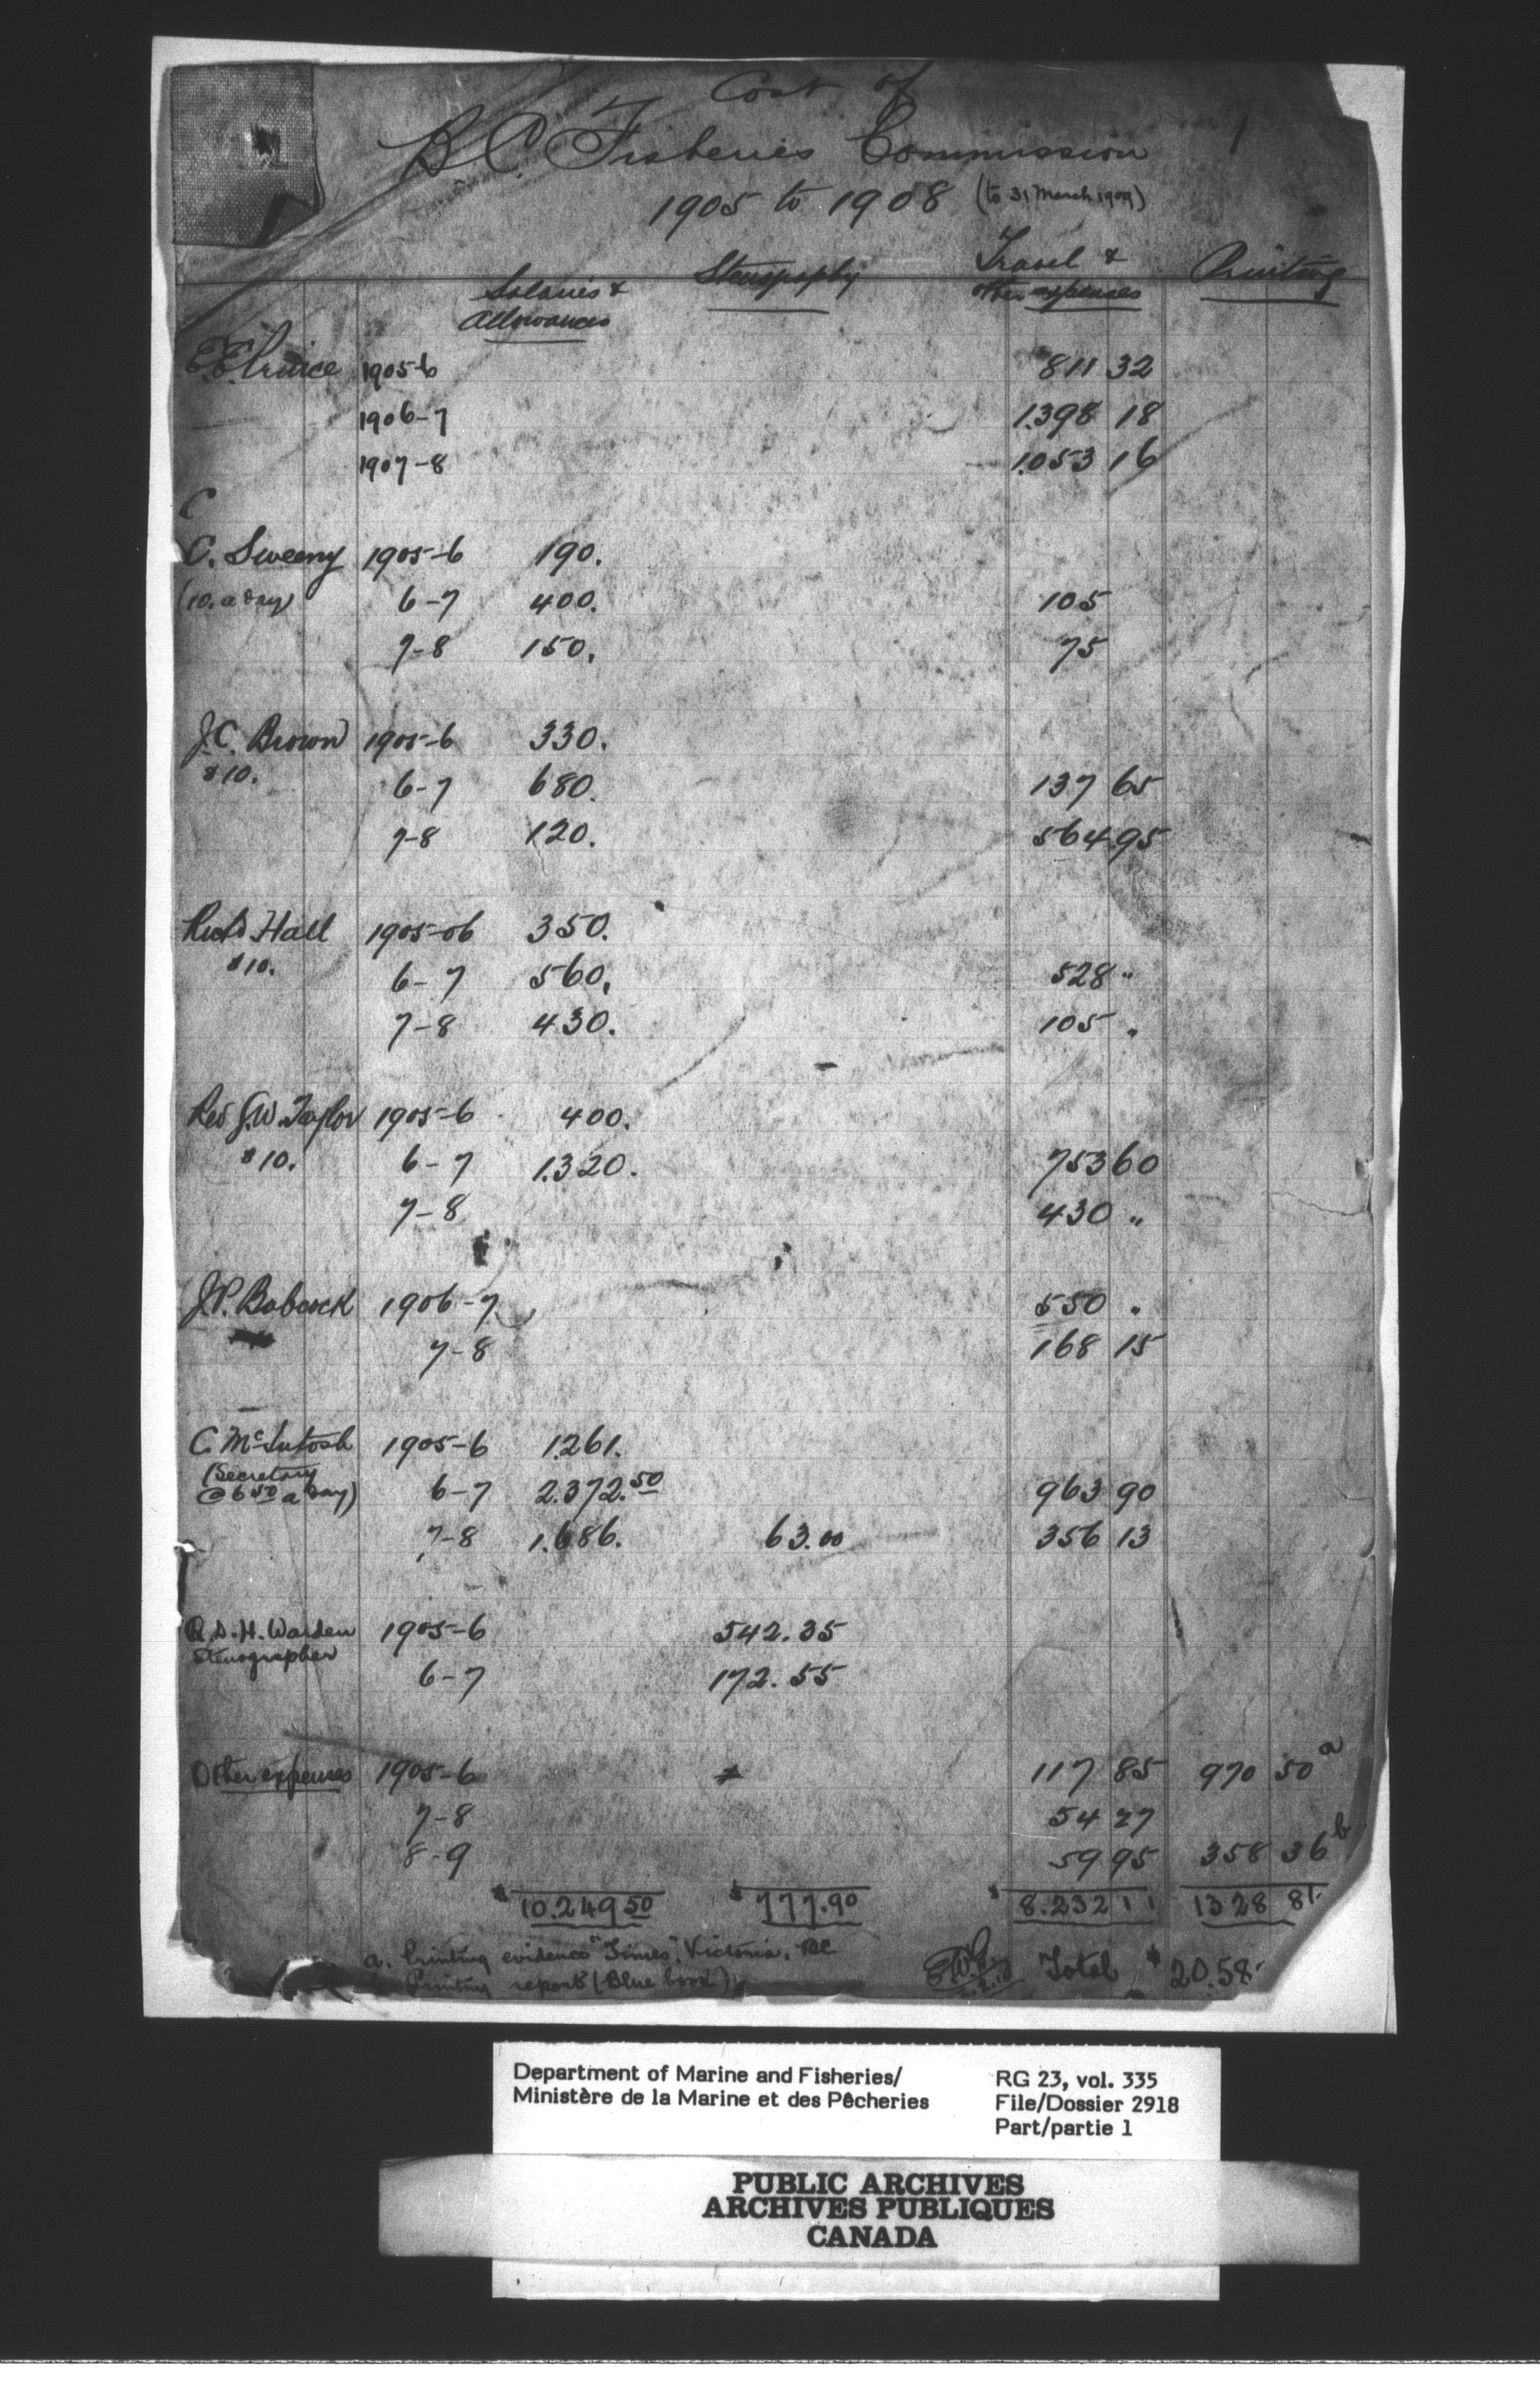 Cost of
B.C. Fisheries Commission 1
1905 to 1908 (to 31 March 1909)
Salaries & Allowances Stenography Travel & other expenses Printing
E.E. Prince 1905-6 811 32
1906-7 1.398 18
1907-8 1.053 16
C
C. Sweeny 1905-6 190.
(10. a day) 6-7 400. 105
7-8 150. 75
J.C. Brown 1905-6 330.
$10. 6-7 680. 137 65
7-8 120. 564 95
Richd Hall 1905-06 350.
$10. 6-7 560. 528 "
7-8 430. 105 "
Rev J.W. Taylor 1905-6 400.
$10. 6-7 1.320. 753 60
7-8 430 "
J.P. Babcock 1906-7 550 "
7-8 168 15
C. McIntosh 1905-6 1.261.
(Secretary
@ 6 50 a day) 6-7 2.372.50 963 90
7-8 1.686. 63.00 356 13
R.S.H. Warden 1905-6 542.35
Stenographer
6-7 172.55
Other expenses 1905-6 117 85 970 50 a
7-8 54 27
8-9 59 95 358 36 b
$ 10.249 50 $ 777.90 $ 8.232 11 1328 81
a. Printing evidence "Times", Victoria, BC
Printing report (Blue book) Total $ 20.58
Department of Marine and Fisheries/
Ministère de la Marine et des Pêcheries
RG 23, vol. 335
File/Dossier 2918
Part/partie 1
PUBLIC ARCHIVES
ARCHIVES PUBLIQUES
CANADA